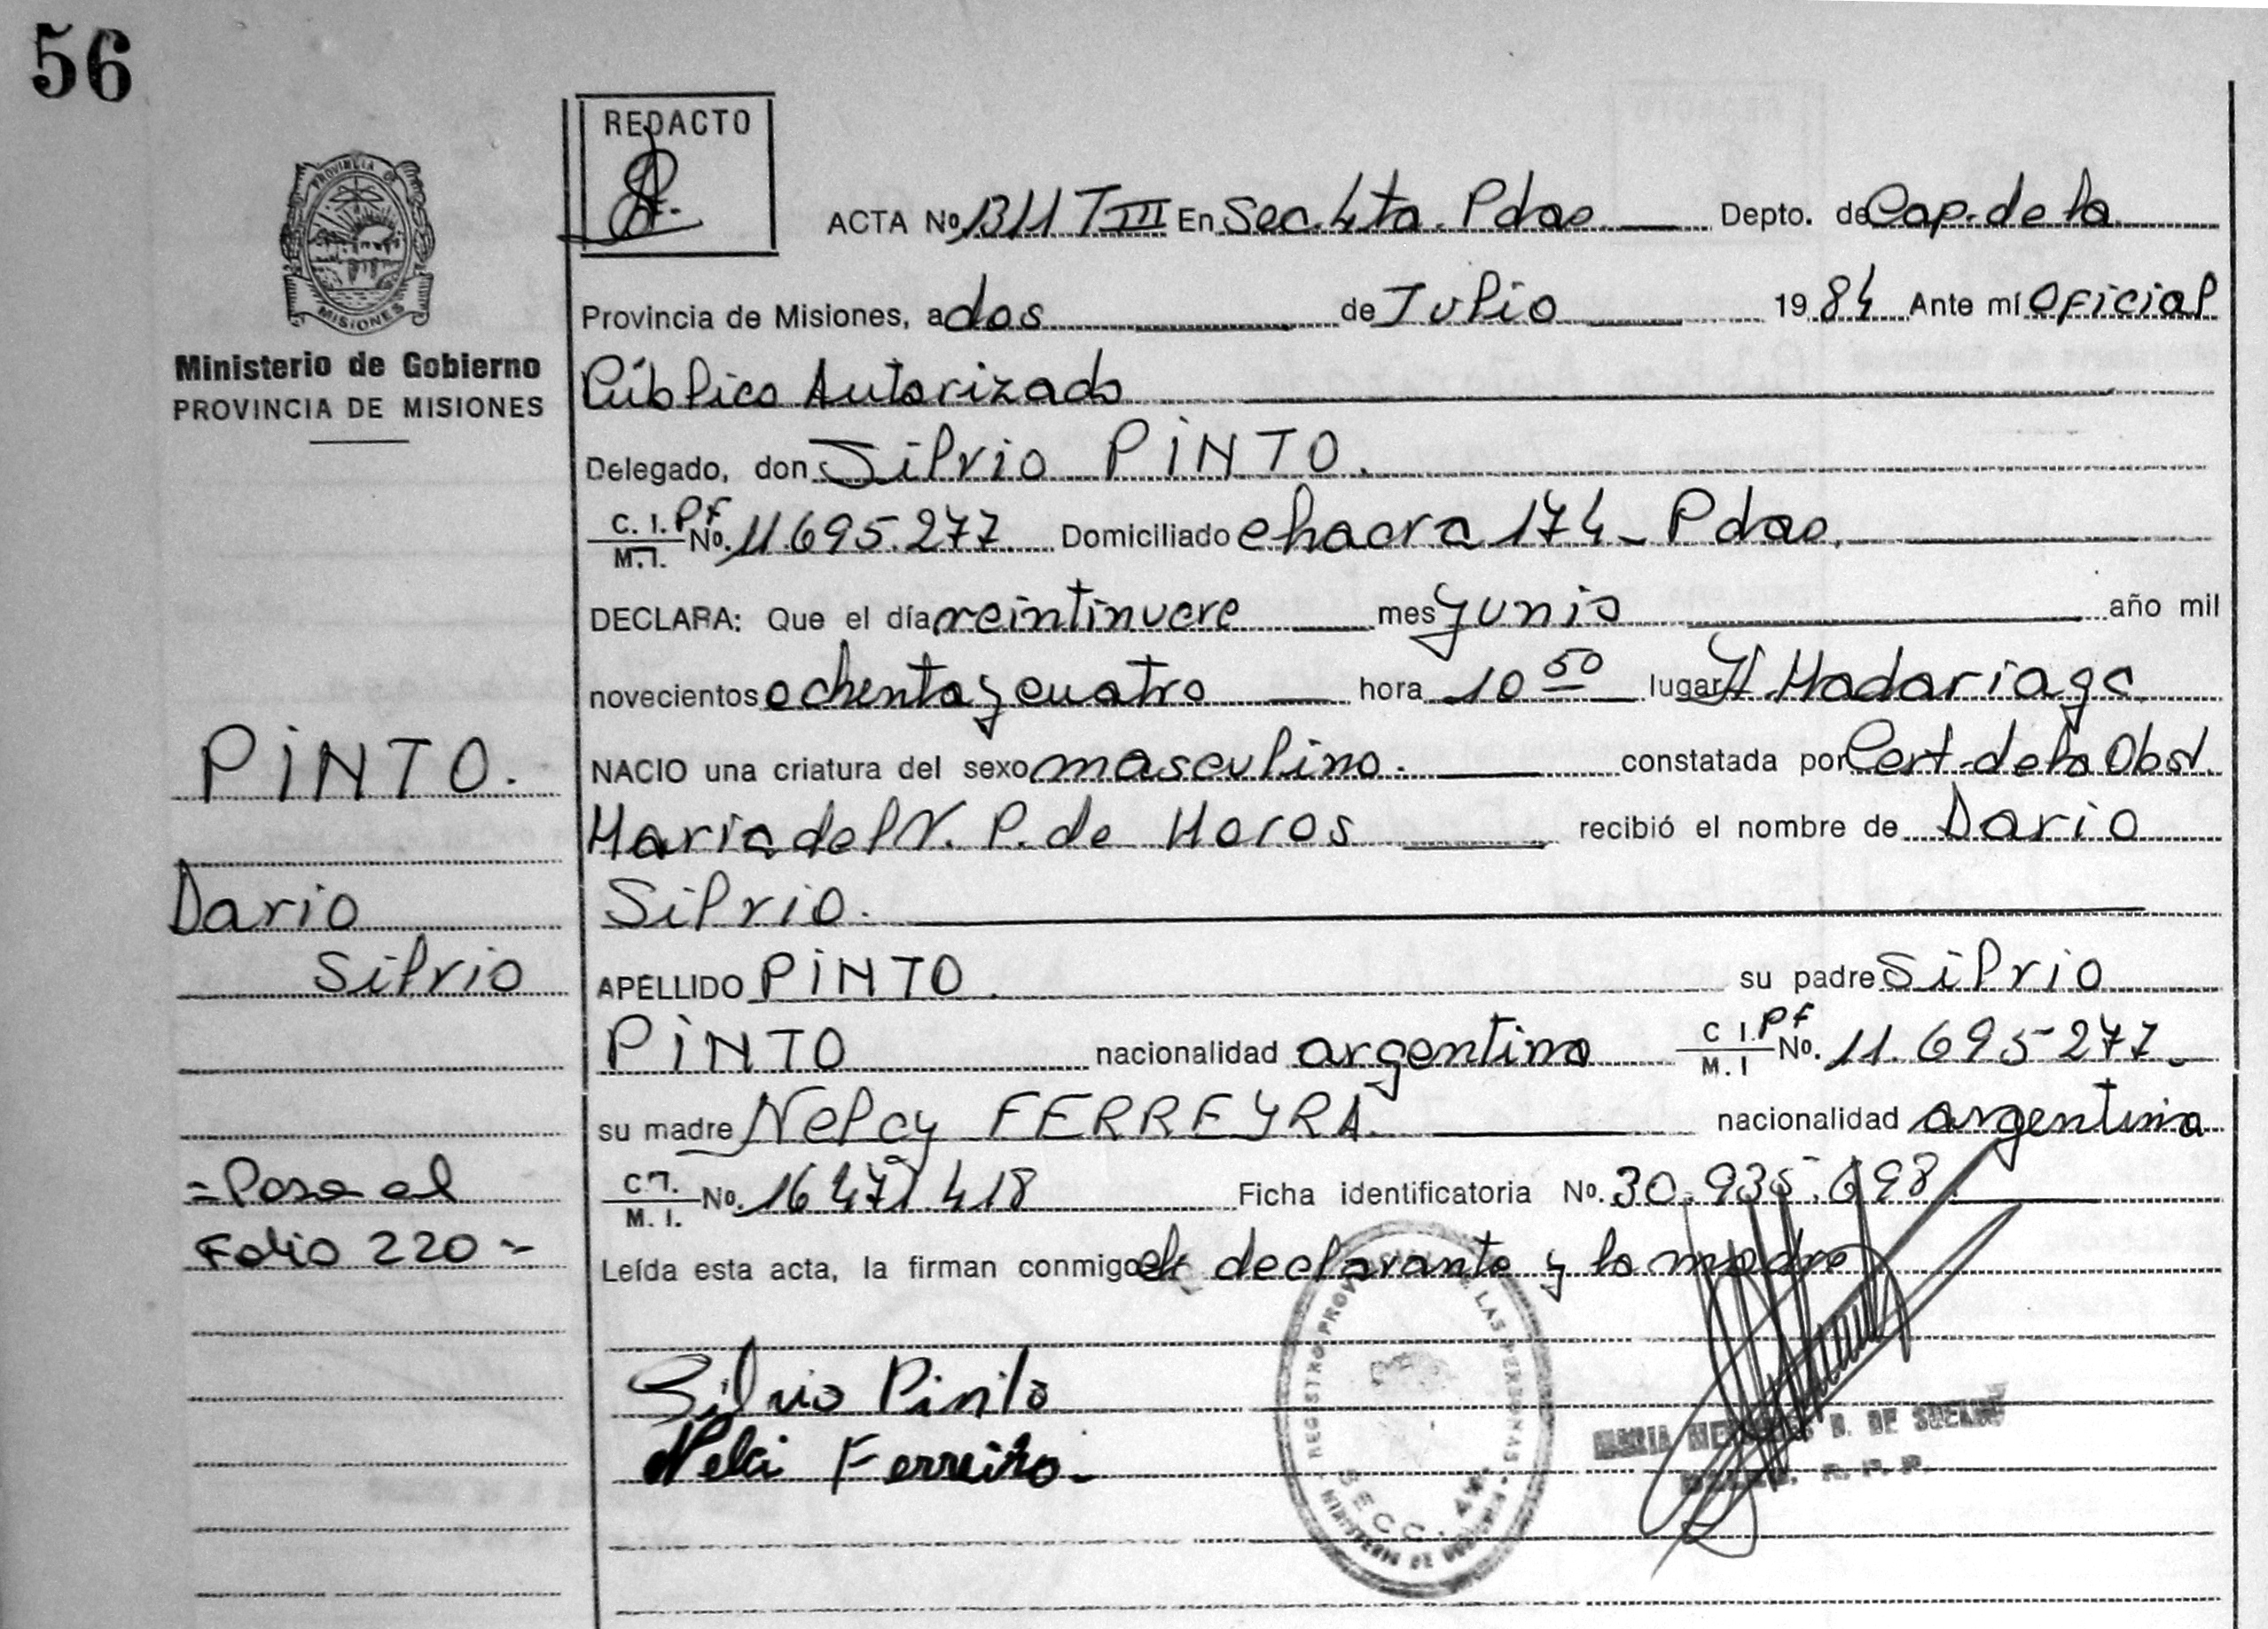 56
REDACTO
PROVINCIA DE
MISIONES
Ministerio de Gobierno
PROVINCIA DE MISIONES
ACTA Nº 1311 T III En Sec. 4ta. Pdas. Depto. de Cap. de la
Provincia de Misiones, a dos de Julio 1984 Ante mí Oficial
Público Autorizado
Delegado, don Silvio PINTO.
C. I. Pf M.I. Nº. 11.695.277 Domiciliado chacra 174 - Pdas.
DECLARA: Que el día veintinueve mes Junio año mil
novecientos ochenta y cuatro hora 10 50 lugar H. Madariaga
NACIO una criatura del sexo masculino. constatada por Cert. de la Obst.
Maria del V. P. de Moros recibió el nombre de Dario
Silvio.
APELLIDO PINTO. su padre Silvio
PINTO nacionalidad argentino C I. Pf M. I Nº. 11.695.277.
su madre Nelcy FERREYRA. nacionalidad argentina
C I. M. I. Nº. 16.471.418 Ficha identificatoria Nº. 30.935.698.
Leída esta acta, la firman conmigo el declarante y la madre
PINTO.
Dario
Silvio
= Pasa al
Folio 220 =
Silvio Pinto
Nelci Ferreira
REGISTRO PROVINCIAL DE LAS PERSONAS
SECC. 4ta.
MINISTERIO DE GOBIERNO
MARIA MERCEDES D. DE
R. P. P.